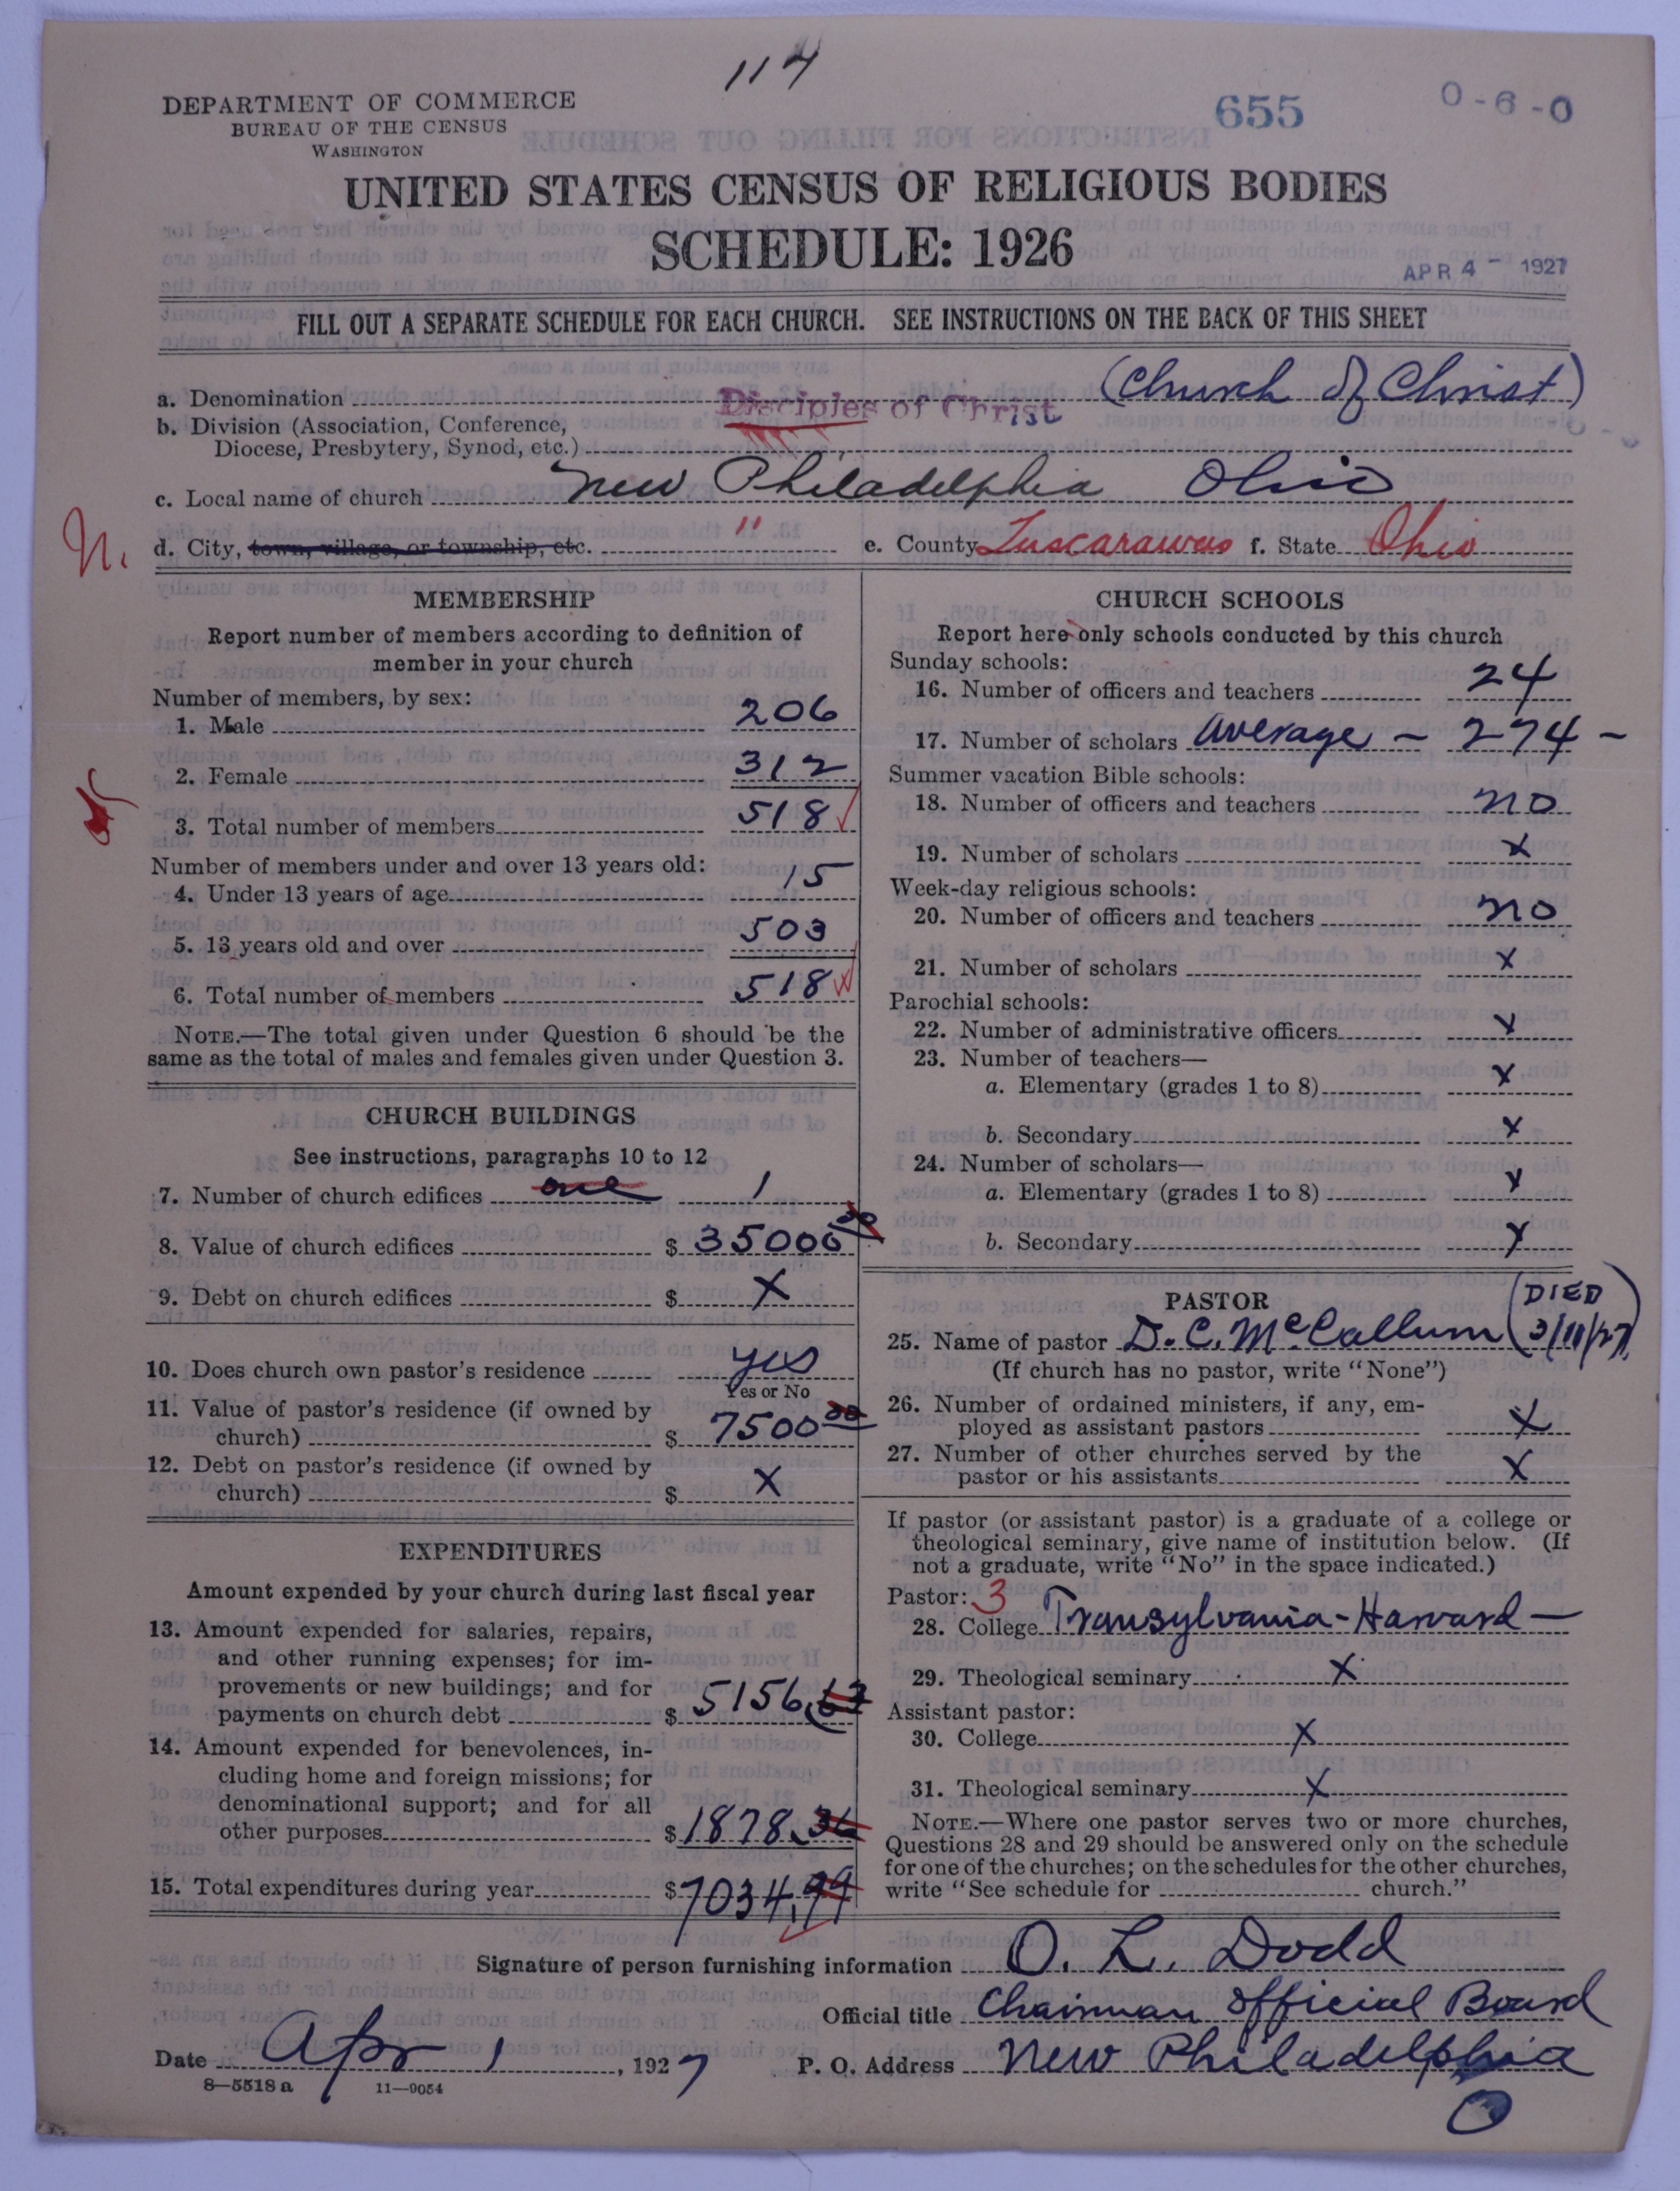 114
DEPARTMENT OF COMMERCE
BUREAU OF THE CENSUS
WASHINGTON
655
0-6-0
UNITED STATES CENSUS OF RELIGIOUS BODIES
SCHEDULE: 1926
APR 4 - 1927
FILL OUT A SEPARATE SCHEDULE FOR EACH CHURCH. SEE INSTRUCTIONS ON THE BACK OF THIS SHEET
a. Denomination Disciples of Christ (Church of Christ)
b. Division (Association, Conference,
Diocese, Presbytery, Synod, etc.)
c. Local name of church New Philadelphia Ohio
N. d. City, town, village, or township, etc. " e. County Tuscarawas f. State Ohio
MEMBERSHIP
Report number of members according to definition of
member in your church
Number of members, by sex:
1. Male 206
2. Female 312
3. Total number of members 518
Number of members under and over 13 years old:
4. Under 13 years of age 15
5. 13 years old and over 503
6. Total number of members 518
NOTE.—The total given under Question 6 should be the
same as the total of males and females given under Question 3.
CHURCH BUILDINGS
See instructions, paragraphs 10 to 12
7. Number of church edifices one 1
8. Value of church edifices $ 35000 00
9. Debt on church edifices $ X
10. Does church own pastor's residence yes
Yes or No
11. Value of pastor's residence (if owned by
church) $ 7500 00
12. Debt on pastor's residence (if owned by
church) $ X
EXPENDITURES
Amount expended by your church during last fiscal year
13. Amount expended for salaries, repairs,
and other running expenses; for im-
provements or new buildings; and for
payments on church debt $ 5156.63
14. Amount expended for benevolences, in-
cluding home and foreign missions; for
denominational support; and for all
other purposes $ 1878.36
15. Total expenditures during year $ 7034.99
CHURCH SCHOOLS
Report here only schools conducted by this church
Sunday schools:
16. Number of officers and teachers 24
17. Number of scholars Average - 274 -
Summer vacation Bible schools:
18. Number of officers and teachers no
19. Number of scholars X
Week-day religious schools:
20. Number of officers and teachers no
21. Number of scholars X
Parochial schools:
22. Number of administrative officers X
23. Number of teachers—
a. Elementary (grades 1 to 8) X
b. Secondary X
24. Number of scholars—
a. Elementary (grades 1 to 8) X
b. Secondary X
PASTOR
25. Name of pastor D. C. McCallum (DIED 3/11/27)
(If church has no pastor, write "None")
26. Number of ordained ministers, if any, em-
ployed as assistant pastors X
27. Number of other churches served by the
pastor or his assistants X
If pastor (or assistant pastor) is a graduate of a college or
theological seminary, give name of institution below. (If
not a graduate, write "No" in the space indicated.)
Pastor: 3
28. College Transylvania - Harvard -
29. Theological seminary X
Assistant pastor:
30. College X
31. Theological seminary X
NOTE.—Where one pastor serves two or more churches,
Questions 28 and 29 should be answered only on the schedule
for one of the churches; on the schedules for the other churches,
write "See schedule for church."
Signature of person furnishing information O. L. Dodd
Official title Chairman Official Board
Date Apr 1, 1927 P. O. Address New Philadelphia
O
8—5518 a 11—9054